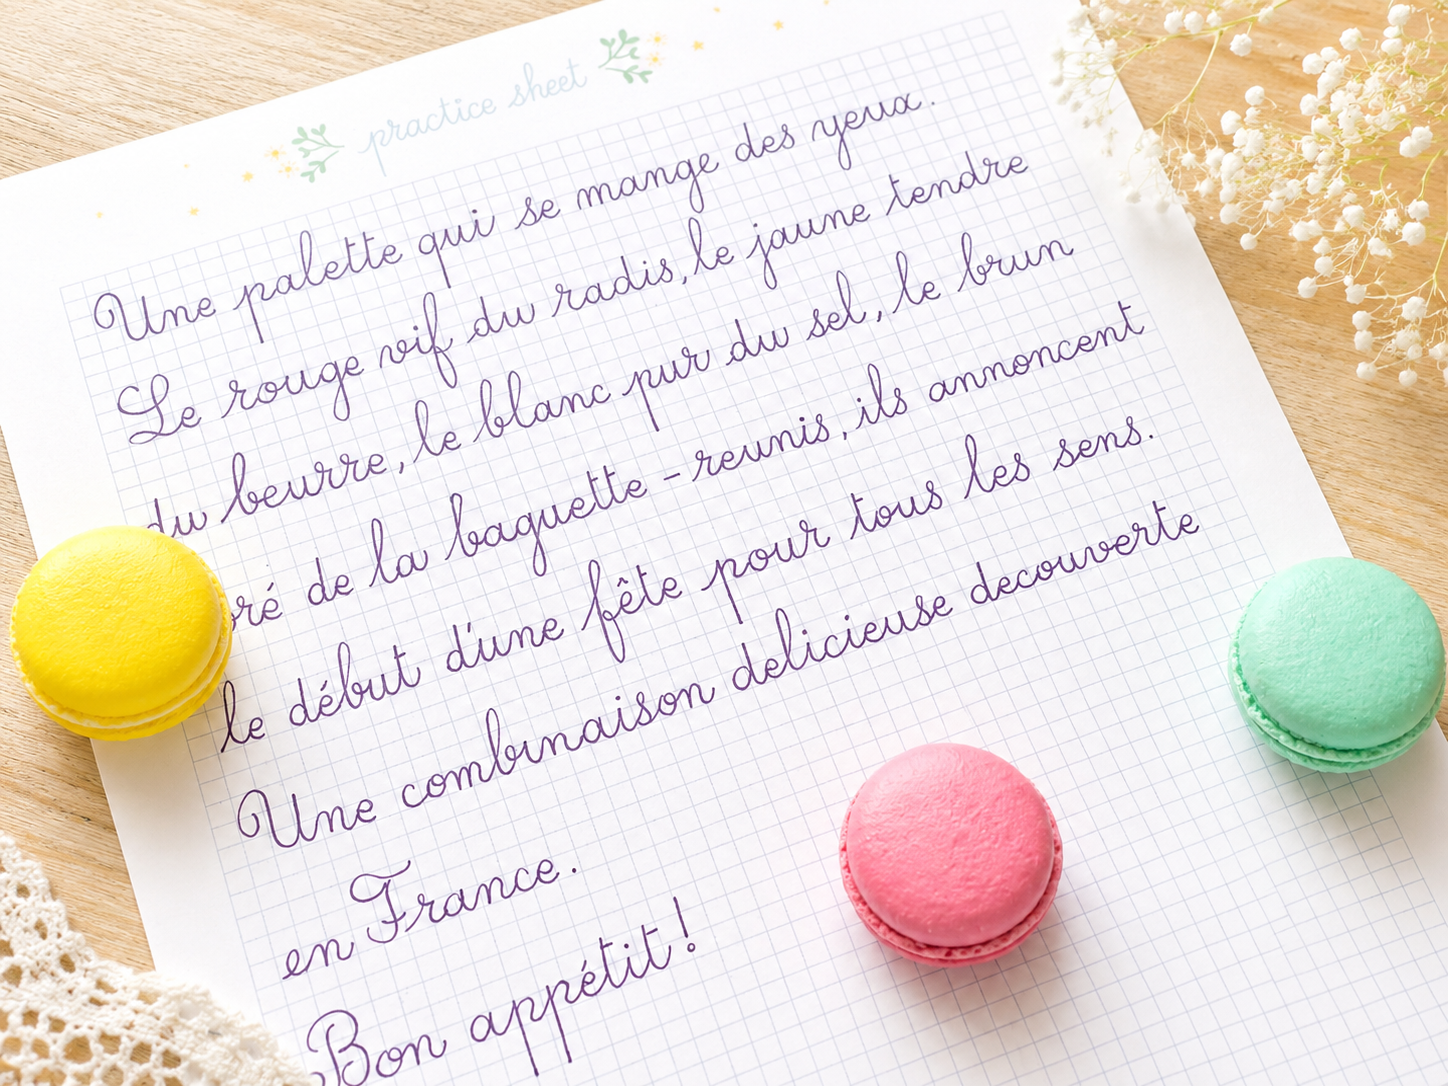 practice sheet
Une palette qui se mange des yeux.
Le rouge vif du radis, le jaune tendre
du beurre, le blanc pur du sel, le brun
de la baguette - reunis, ils annoncent
le début d'une fête pour tous les sens.
Une combinaison delicieuse decouverte
en France.
Bon appétit!